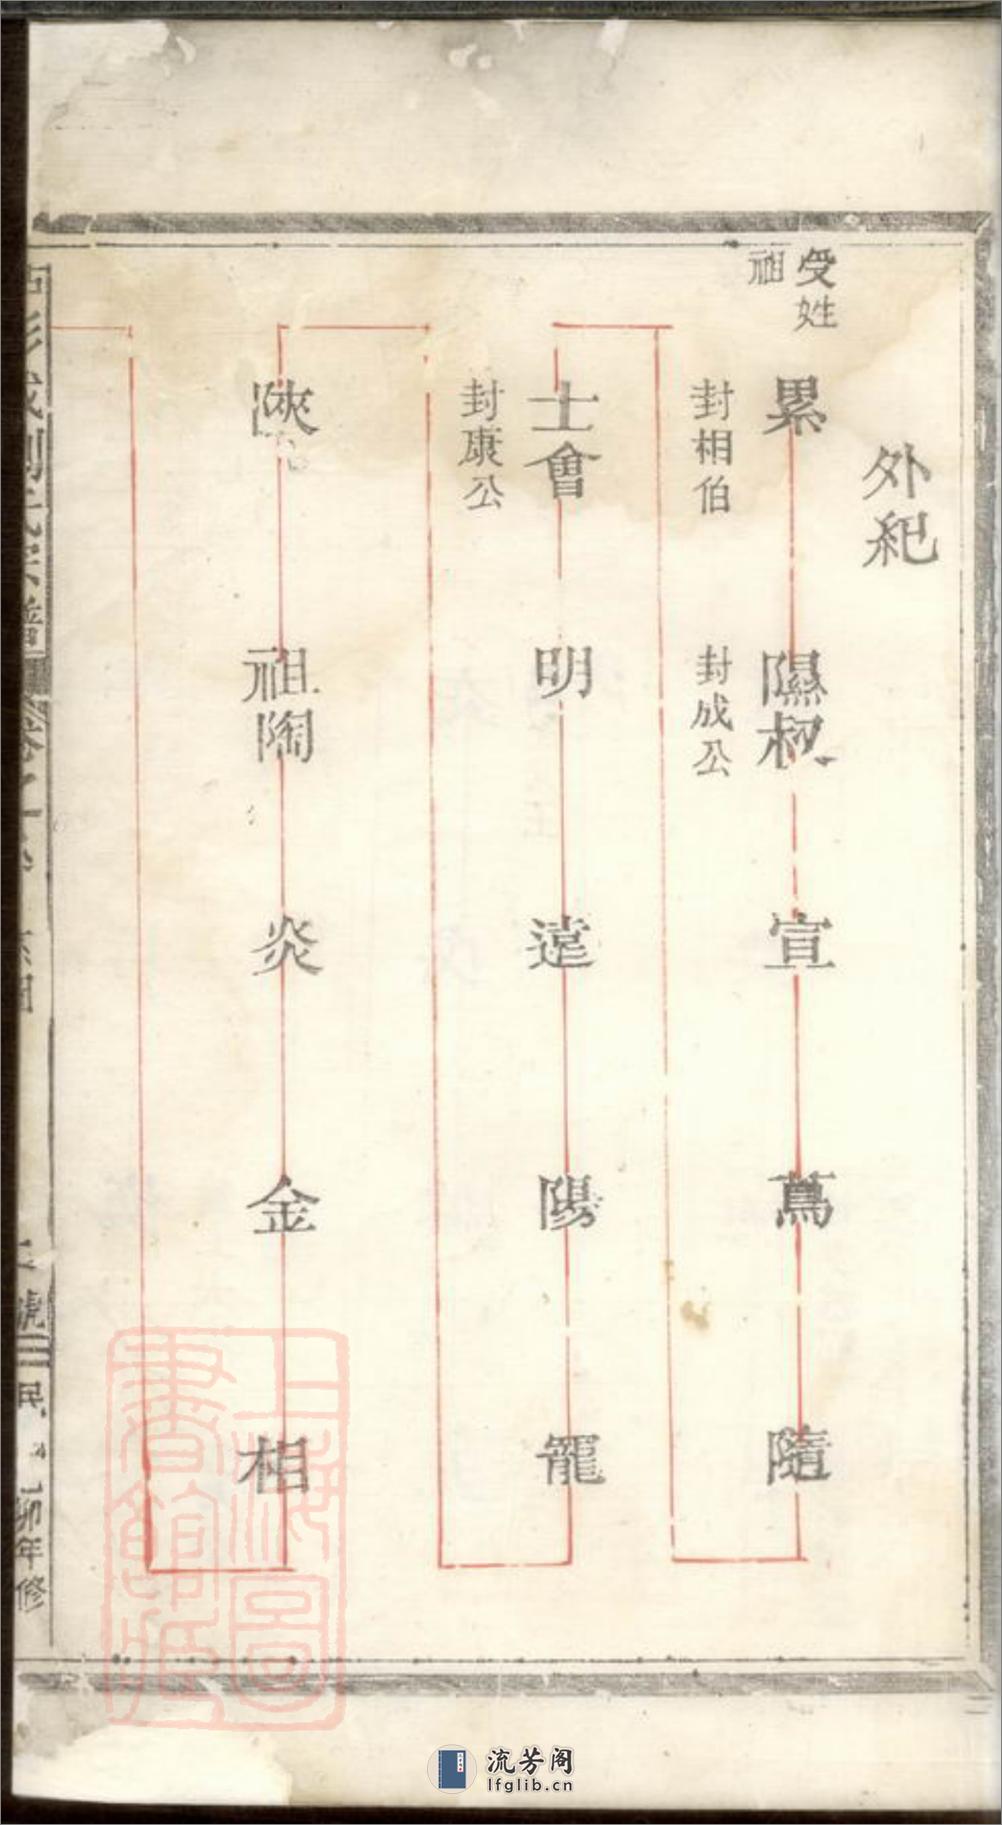 外紀
受姓
祖
累
封相伯
隰叔
封成公
宣
蔿
隨
士會
封康公
明
遠
陽
寵
陝
祖陶
炎
金
相
劉氏宗譜
卷之
號
民
卯年修
上海圖
書館藏
流芳阁
lfglib.cn